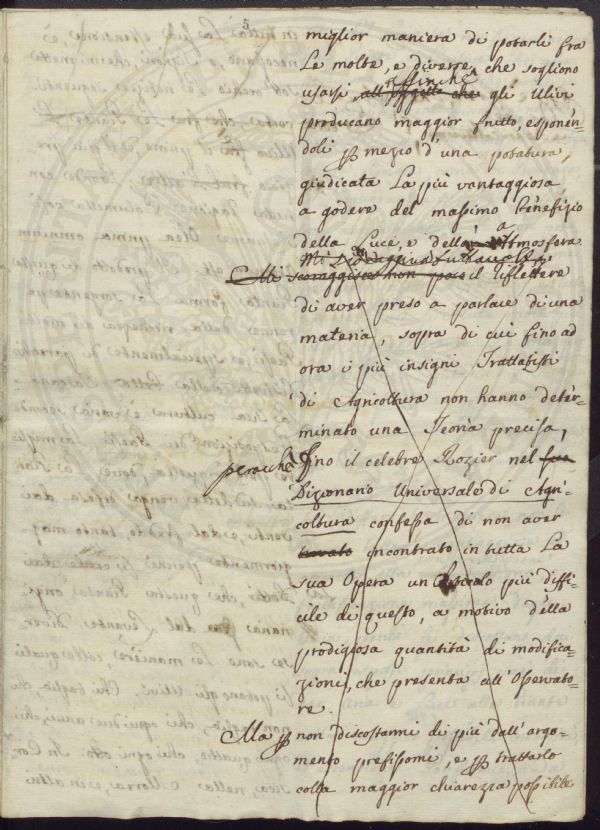 5
miglior maniera di potarli fra
Le molte, e diverse, che sogliono
usarsi, affinchè
all'oggetto che gli Ulivi
producano maggior frutto, esponen=
doli p mezio d'una potatura,
giudicata La più vantaggiosa
a godere del massimo Benefizio
della Luce, e dell'Atmosfera.
Mi
scoraggisce non poco il riflettere
di aver preso a parlare di una
materia, sopra di cui fino ad
ora i più insigni Trattatisti
di Agricoltura non hanno deter=
minato una Teorìa precisa,
perocchè fino il celebre Rozier nel suo
Dizionario Universale di Agri=
coltura confessa di non aver
trovato incontrato in tutta La
sua Opera un Articolo più diffi=
cile di questo, a motivo della
prodigiosa quantità di modifica=
zioni, che presenta all'Osservato=
re.
Ma p non discostarmi di più dall'argo=
mento prefissomi, e p trattarlo
colla maggior chiarezza possibile